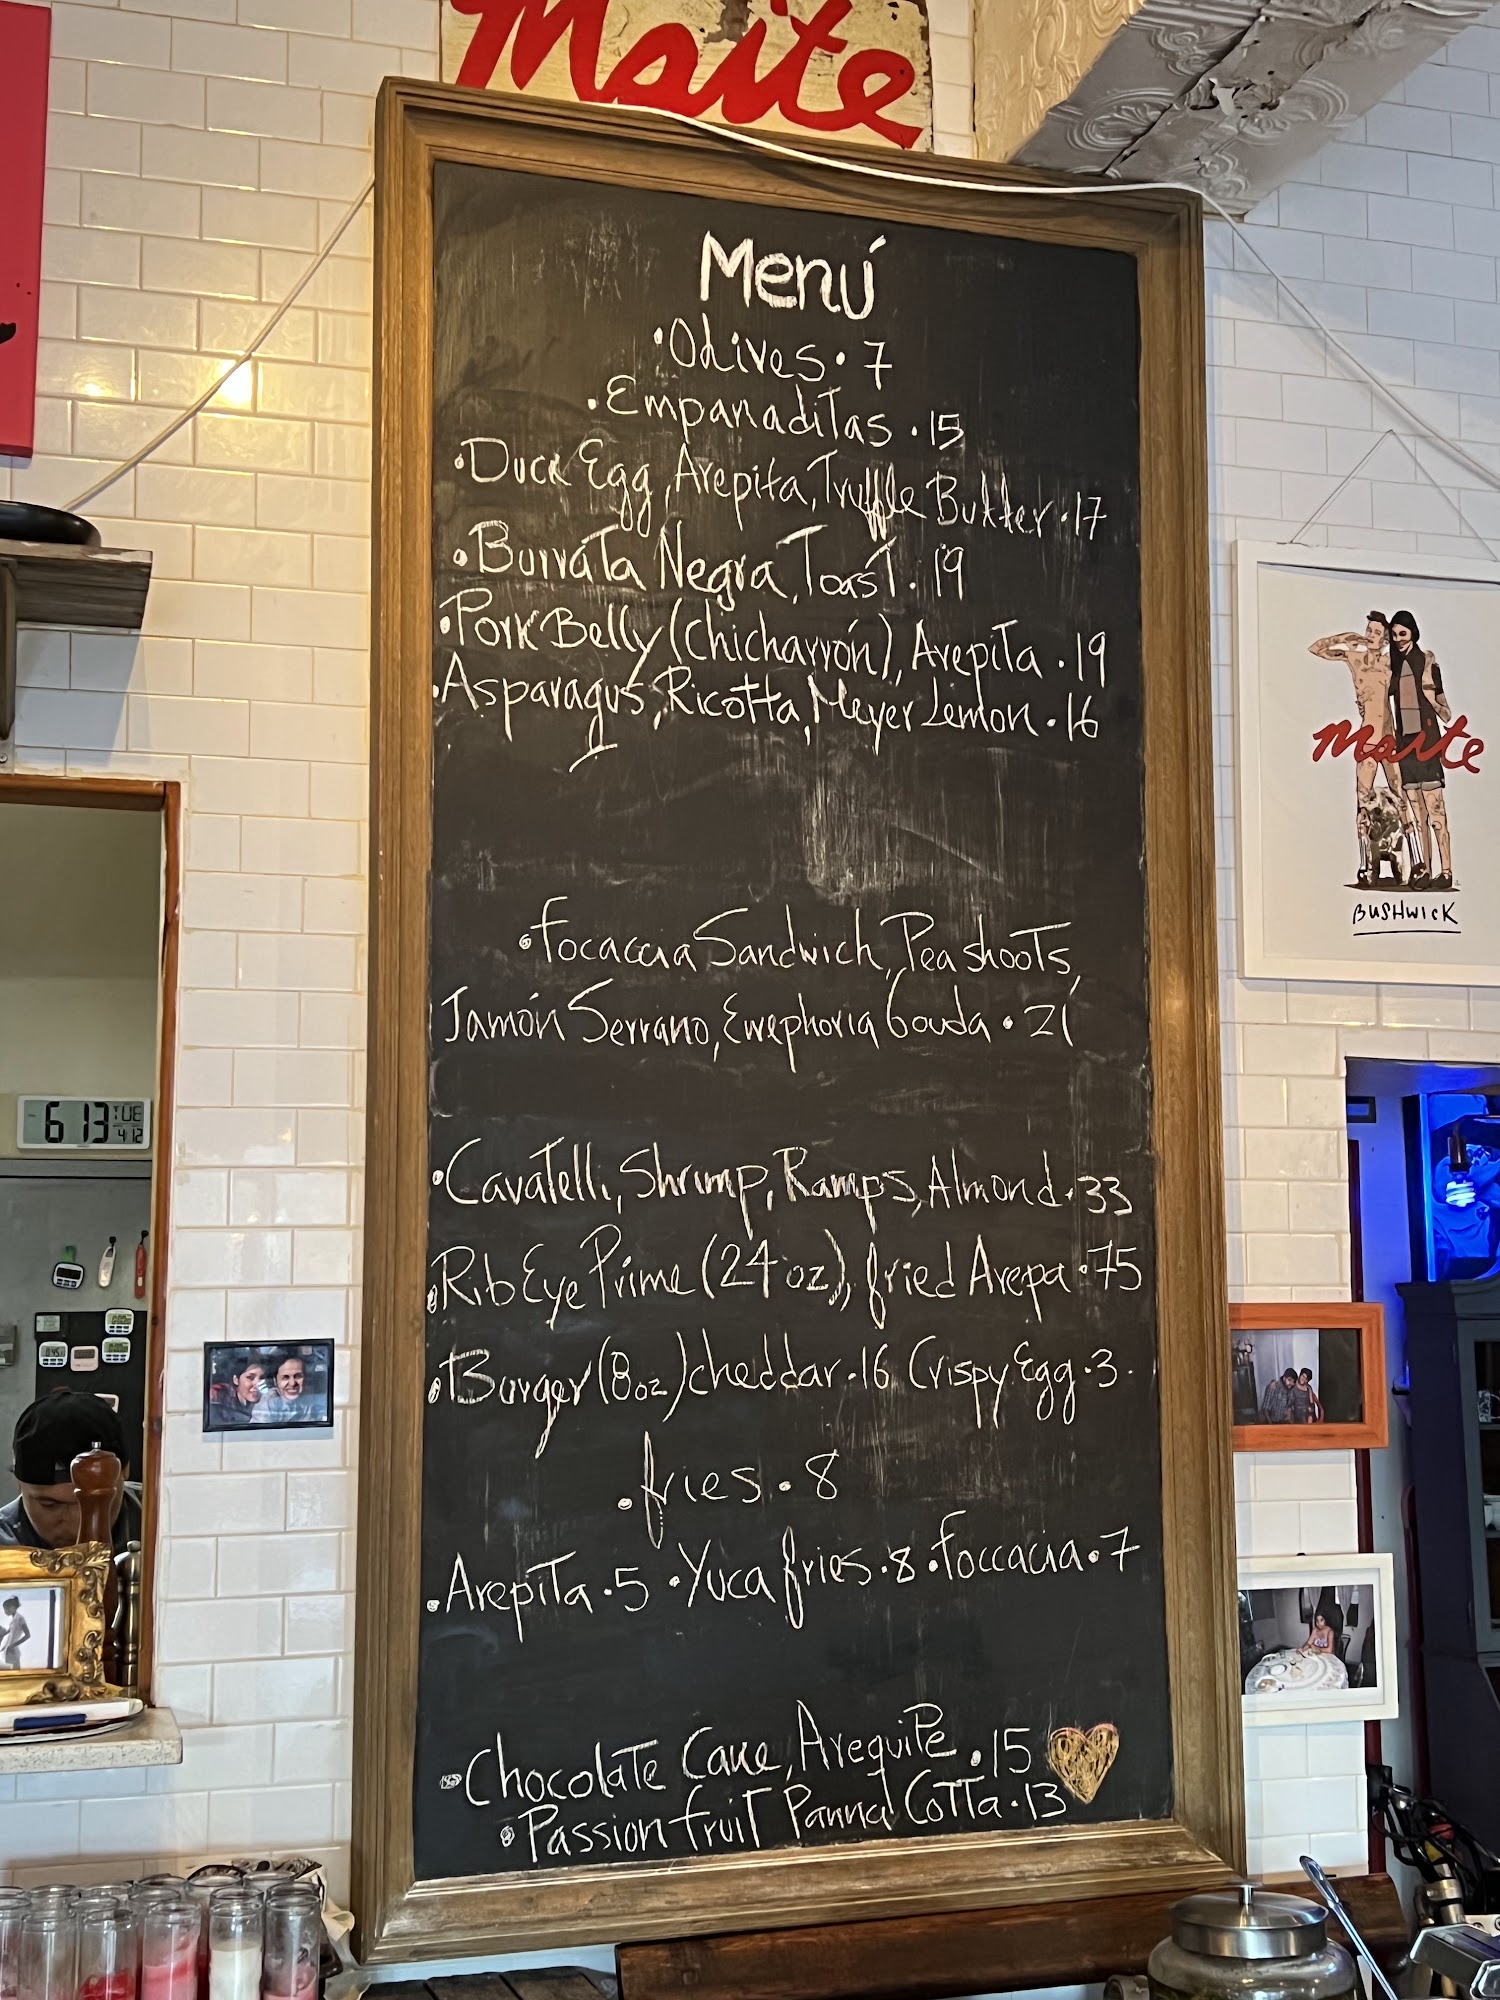 Maite
Menú
• Olives • 7
• Empanaditas • 15
• Duck Egg, Arepita, Truffle Butter • 17
• Burrata Negra, Toast • 19
• Pork Belly (Chicharrón), Arepita • 19
• Asparagus, Ricotta, Meyer Lemon • 16
• Focaccia Sandwich, Pea shoots,
Jamón Serrano, Ewephoria Gouda • 21
• Cavatelli, Shrimp, Ramps, Almond • 33
• Rib Eye Prime (24 oz), fried Arepa • 75
• Burger (8oz) cheddar • 16 Crispy Egg • 3 •
• fries • 8
• Arepita • 5 • Yuca fries • 8 • Foccacia • 7
• Chocolate Cake, Arequipe • 15
• Passion fruit Panna Cotta • 13
Maite
BUSHWICK
6 13 TUE
4 12